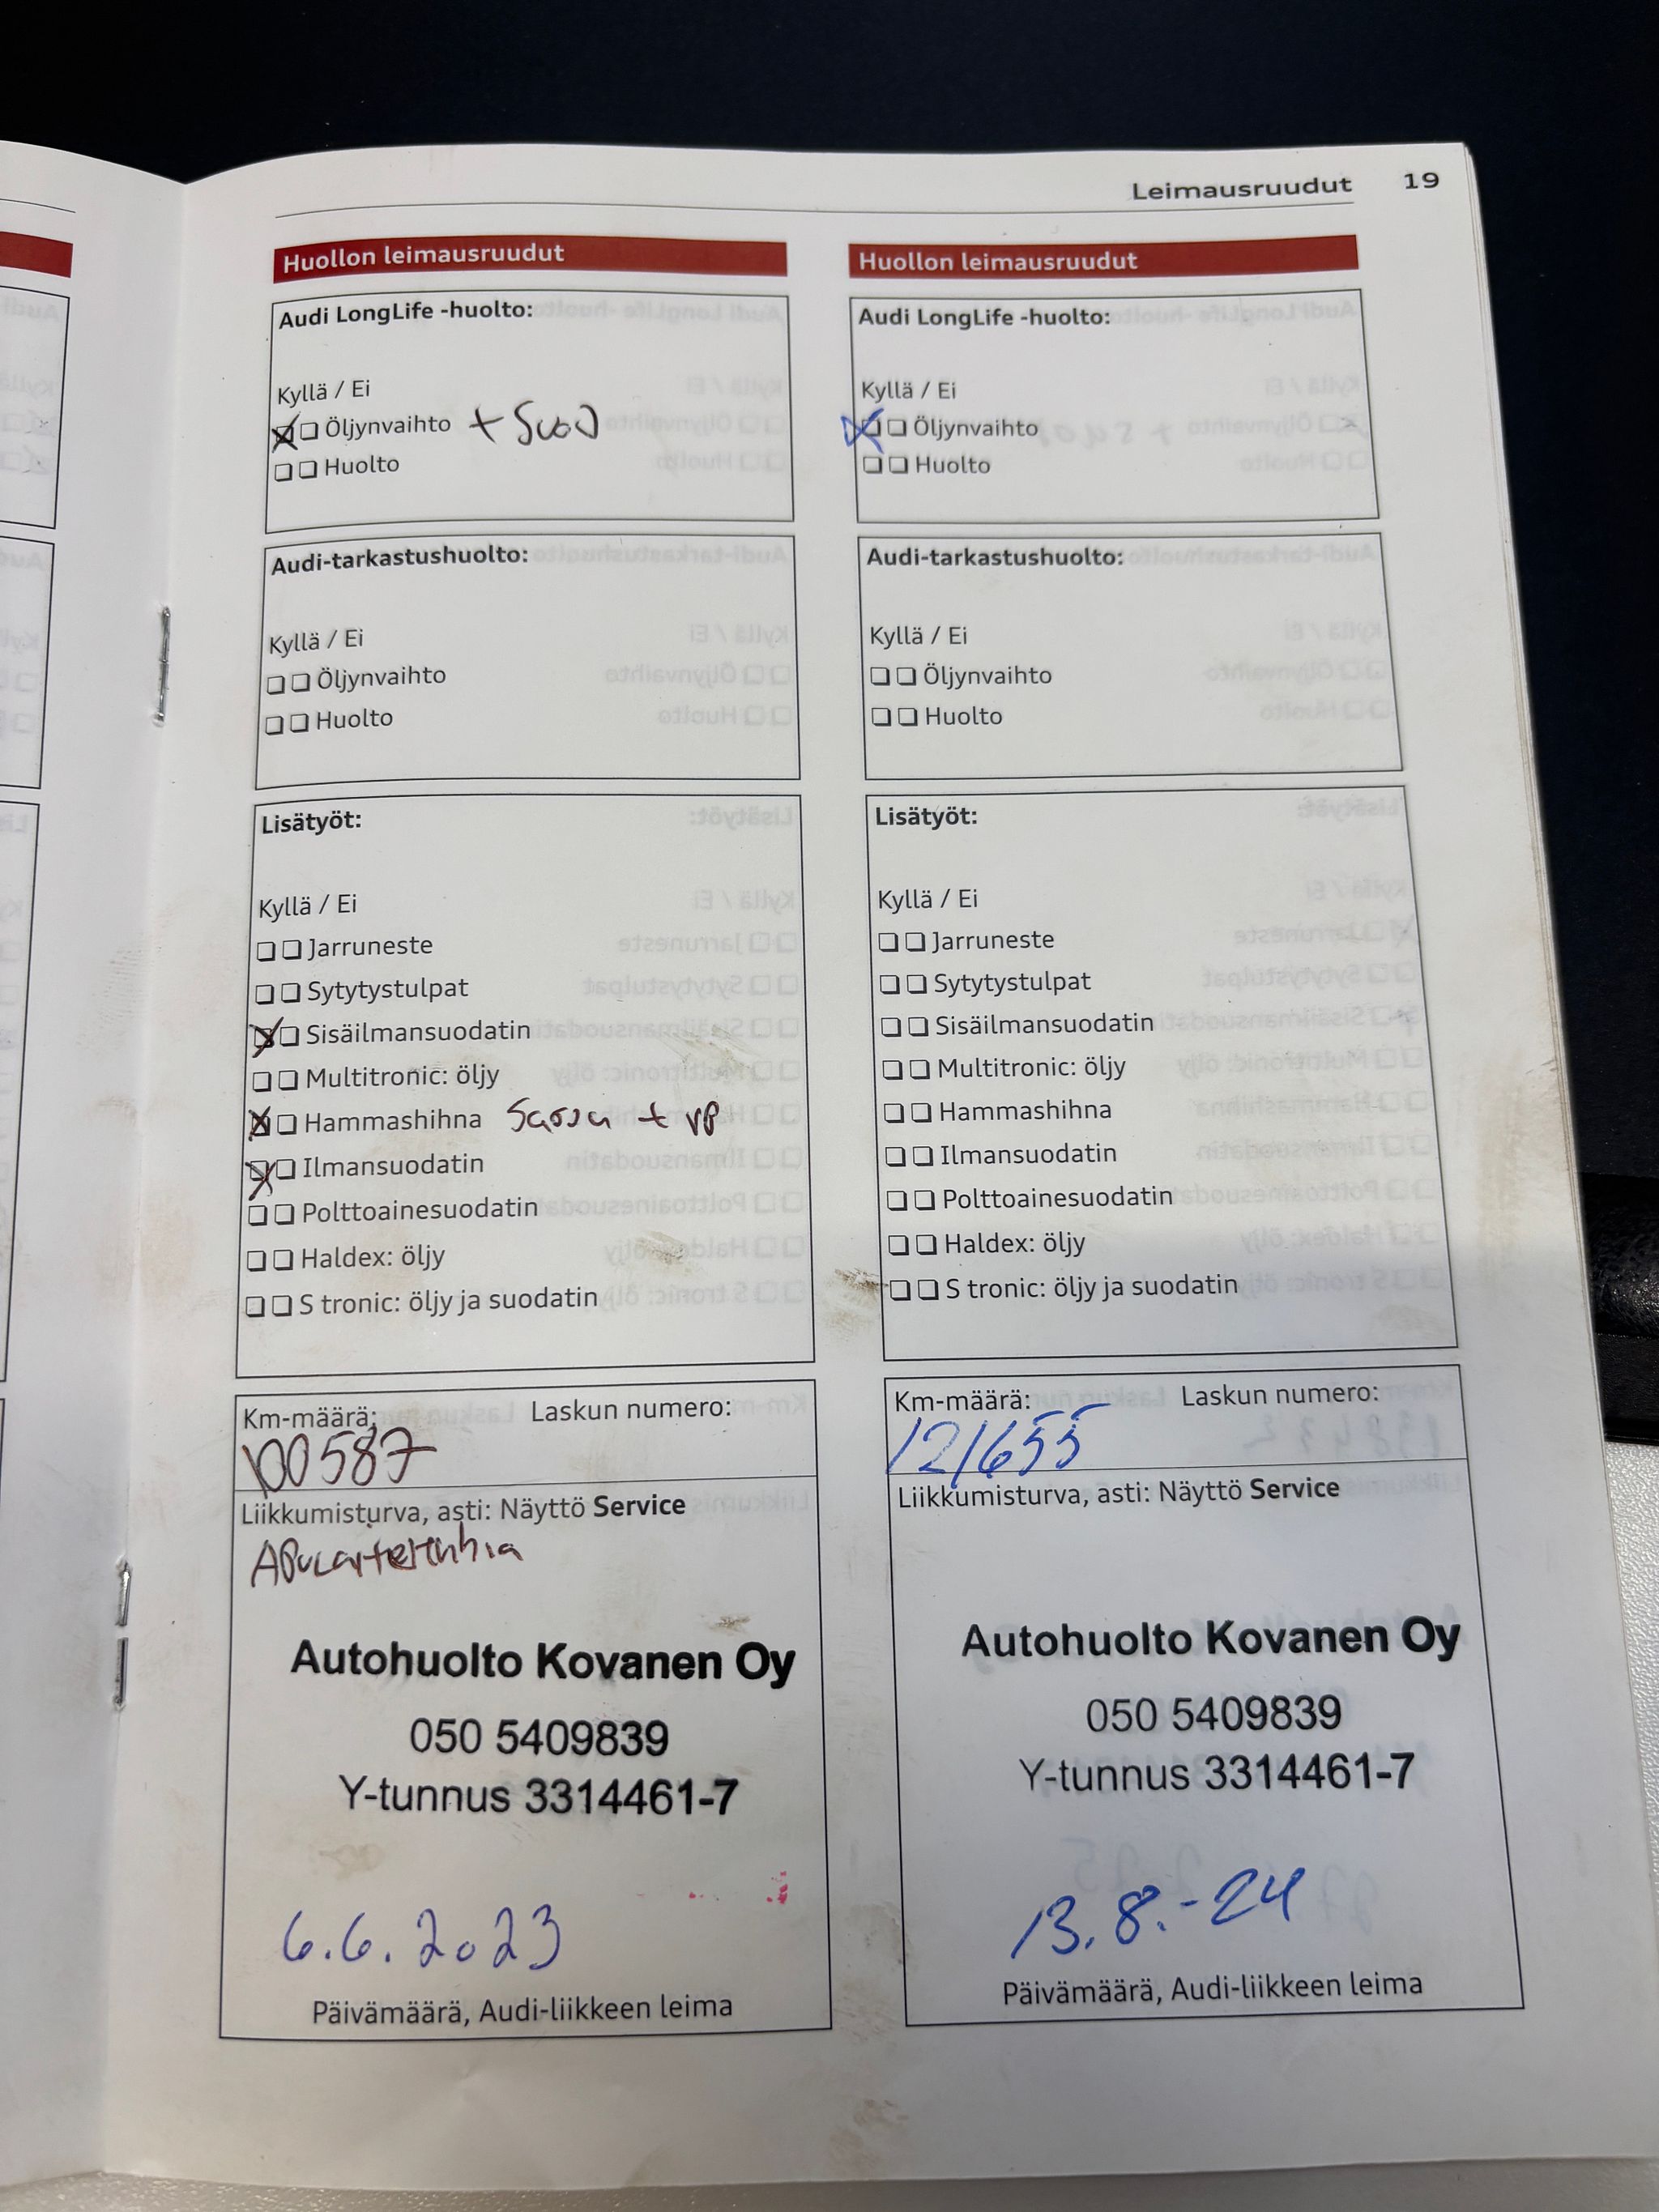 Leimausruudut 19
Huollon leimausruudut
Audi LongLife -huolto:
Kyllä / Ei
Öljynvaihto + Suod
Huolto
Audi-tarkastushuolto:
Kyllä / Ei
Öljynvaihto
Huolto
Lisätyöt:
Kyllä / Ei
Jarruneste
Sytytystulpat
Sisäilmansuodatin
Multitronic: öljy
Hammashihna Sarja + vp
Ilmansuodatin
Polttoainesuodatin
Haldex: öljy
S tronic: öljy ja suodatin
Km-määrä: Laskun numero:
100587
Liikkumisturva, asti: Näyttö Service
Apulaitehihna
Autohuolto Kovanen Oy
050 5409839
Y-tunnus 3314461-7
6.6.2023
Päivämäärä, Audi-liikkeen leima
Huollon leimausruudut
Audi LongLife -huolto:
Kyllä / Ei
Öljynvaihto
Huolto
Audi-tarkastushuolto:
Kyllä / Ei
Öljynvaihto
Huolto
Lisätyöt:
Kyllä / Ei
Jarruneste
Sytytystulpat
Sisäilmansuodatin
Multitronic: öljy
Hammashihna
Ilmansuodatin
Polttoainesuodatin
Haldex: öljy
S tronic: öljy ja suodatin
Km-määrä: Laskun numero:
121655
Liikkumisturva, asti: Näyttö Service
Autohuolto Kovanen Oy
050 5409839
Y-tunnus 3314461-7
13.8.-24
Päivämäärä, Audi-liikkeen leima